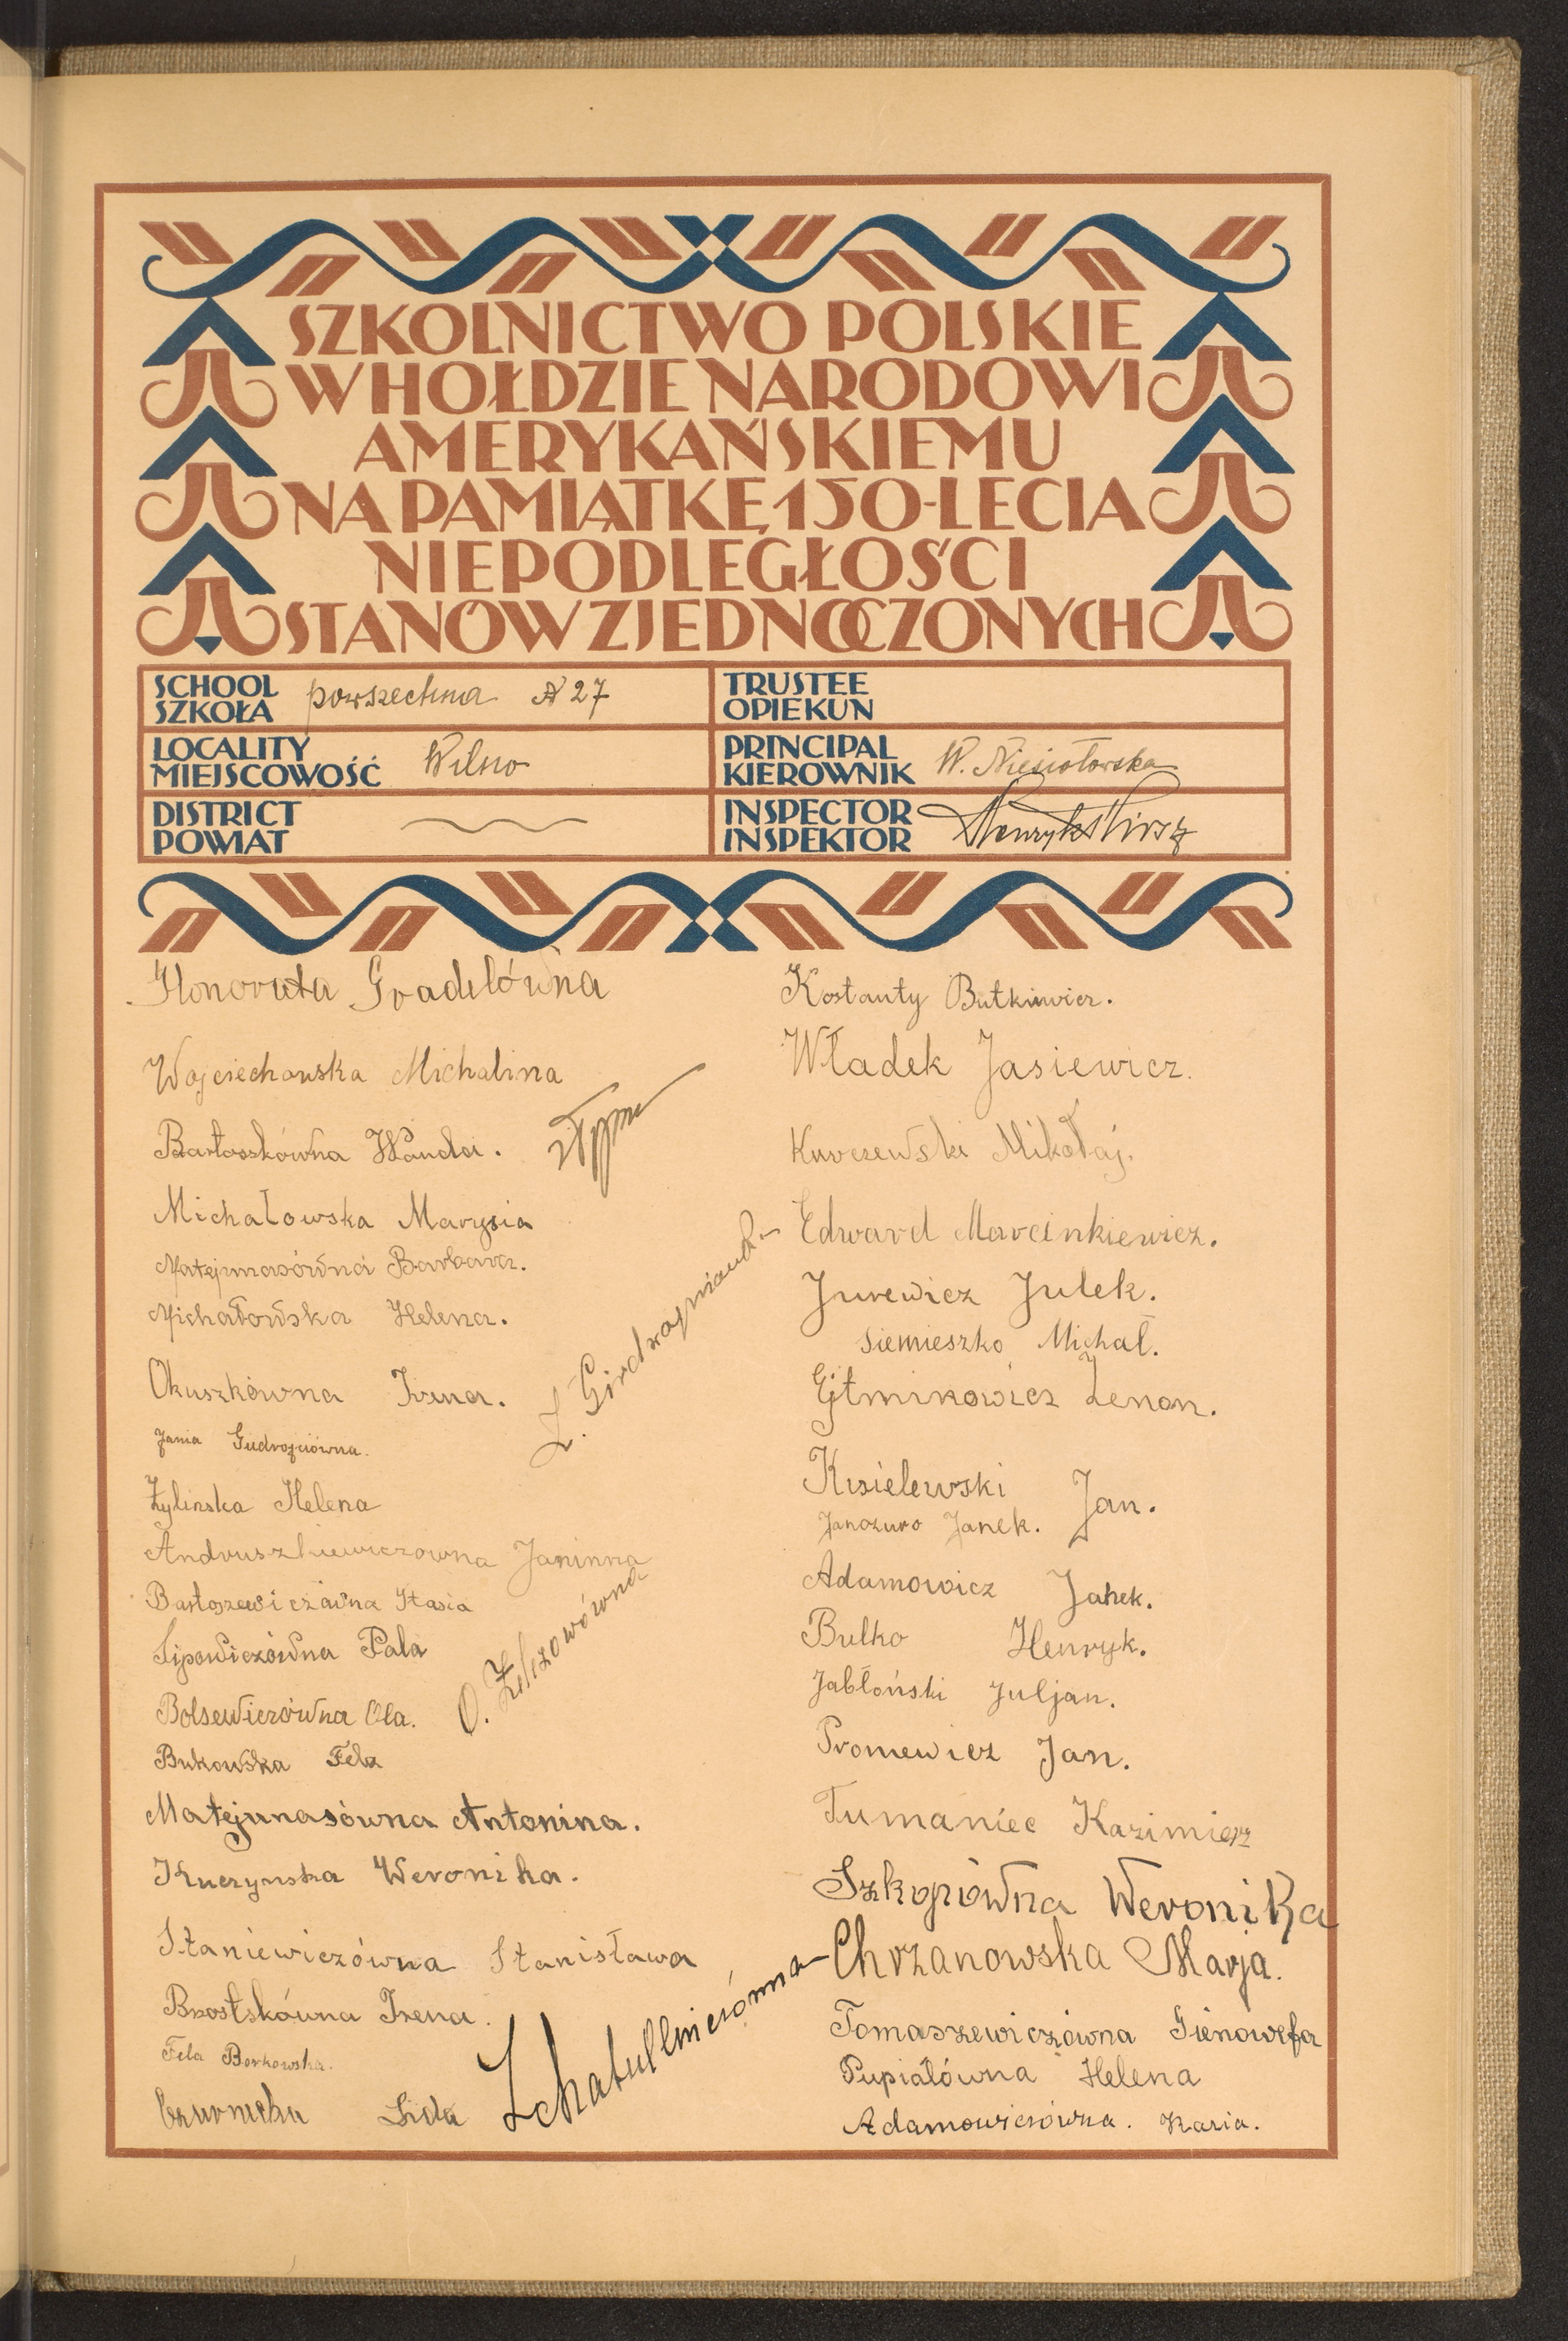 SZKOLNICTWO POLSKIE
W HOŁDZIE NARODOWI
AMERYKAŃSKIEMU
NA PAMIĄTKĘ 150-LECIA
NIEPODLEGŁOŚCI
STANÓW ZJEDNOCZONYCH
SCHOOL
SZKOŁA
powszechna N 27
TRUSTEE
OPIEKUN
LOCALITY
MIEJSCOWOŚĆ
Wilno
PRINCIPAL
KIEROWNIK
W. Niesiołowska
DISTRICT
POWIAT
INSPECTOR
INSPEKTOR
Henryk
Honorata Gradelówna
Wojciechowska Michalina
Bartoszkówna Wanda.
Michałowska Marysia
Matejunasówna Barbara.
Michałowska Helena.
Okuszkówna Irena.
Jania
Żylinska Helena
Andruszkiewiczowna Janinna
Bartoszewiczówna Stasia
Lipowiczówna Pala
Bolsewiczówna Ola.
O.
Bukowska Fela
Matejunasówna Antonina.
Kuczynska Weronika.
Staniewiczówna Stanisława
Irena.
Fela Borkowska.
Lida
Kostanty Butkiewicz.
Władek Jasiewicz.
Kurczewski Mikołaj.
Edward Marcinkiewicz.
Jurewicz Julek.
Siemieszko Michał.
Zenon.
Kisielewski Jan.
Janek.
Adamowicz Janek.
Bulko Henryk.
Jabłoński Juljan.
Proniewicz Jan.
Tumaniec Kazimierz
Szkopówna Weronika
Chrzanowska Marja.
Tomaszewiczówna Gienowefa
Pupiałówna Helena
Adamowiczówna. Kazia.